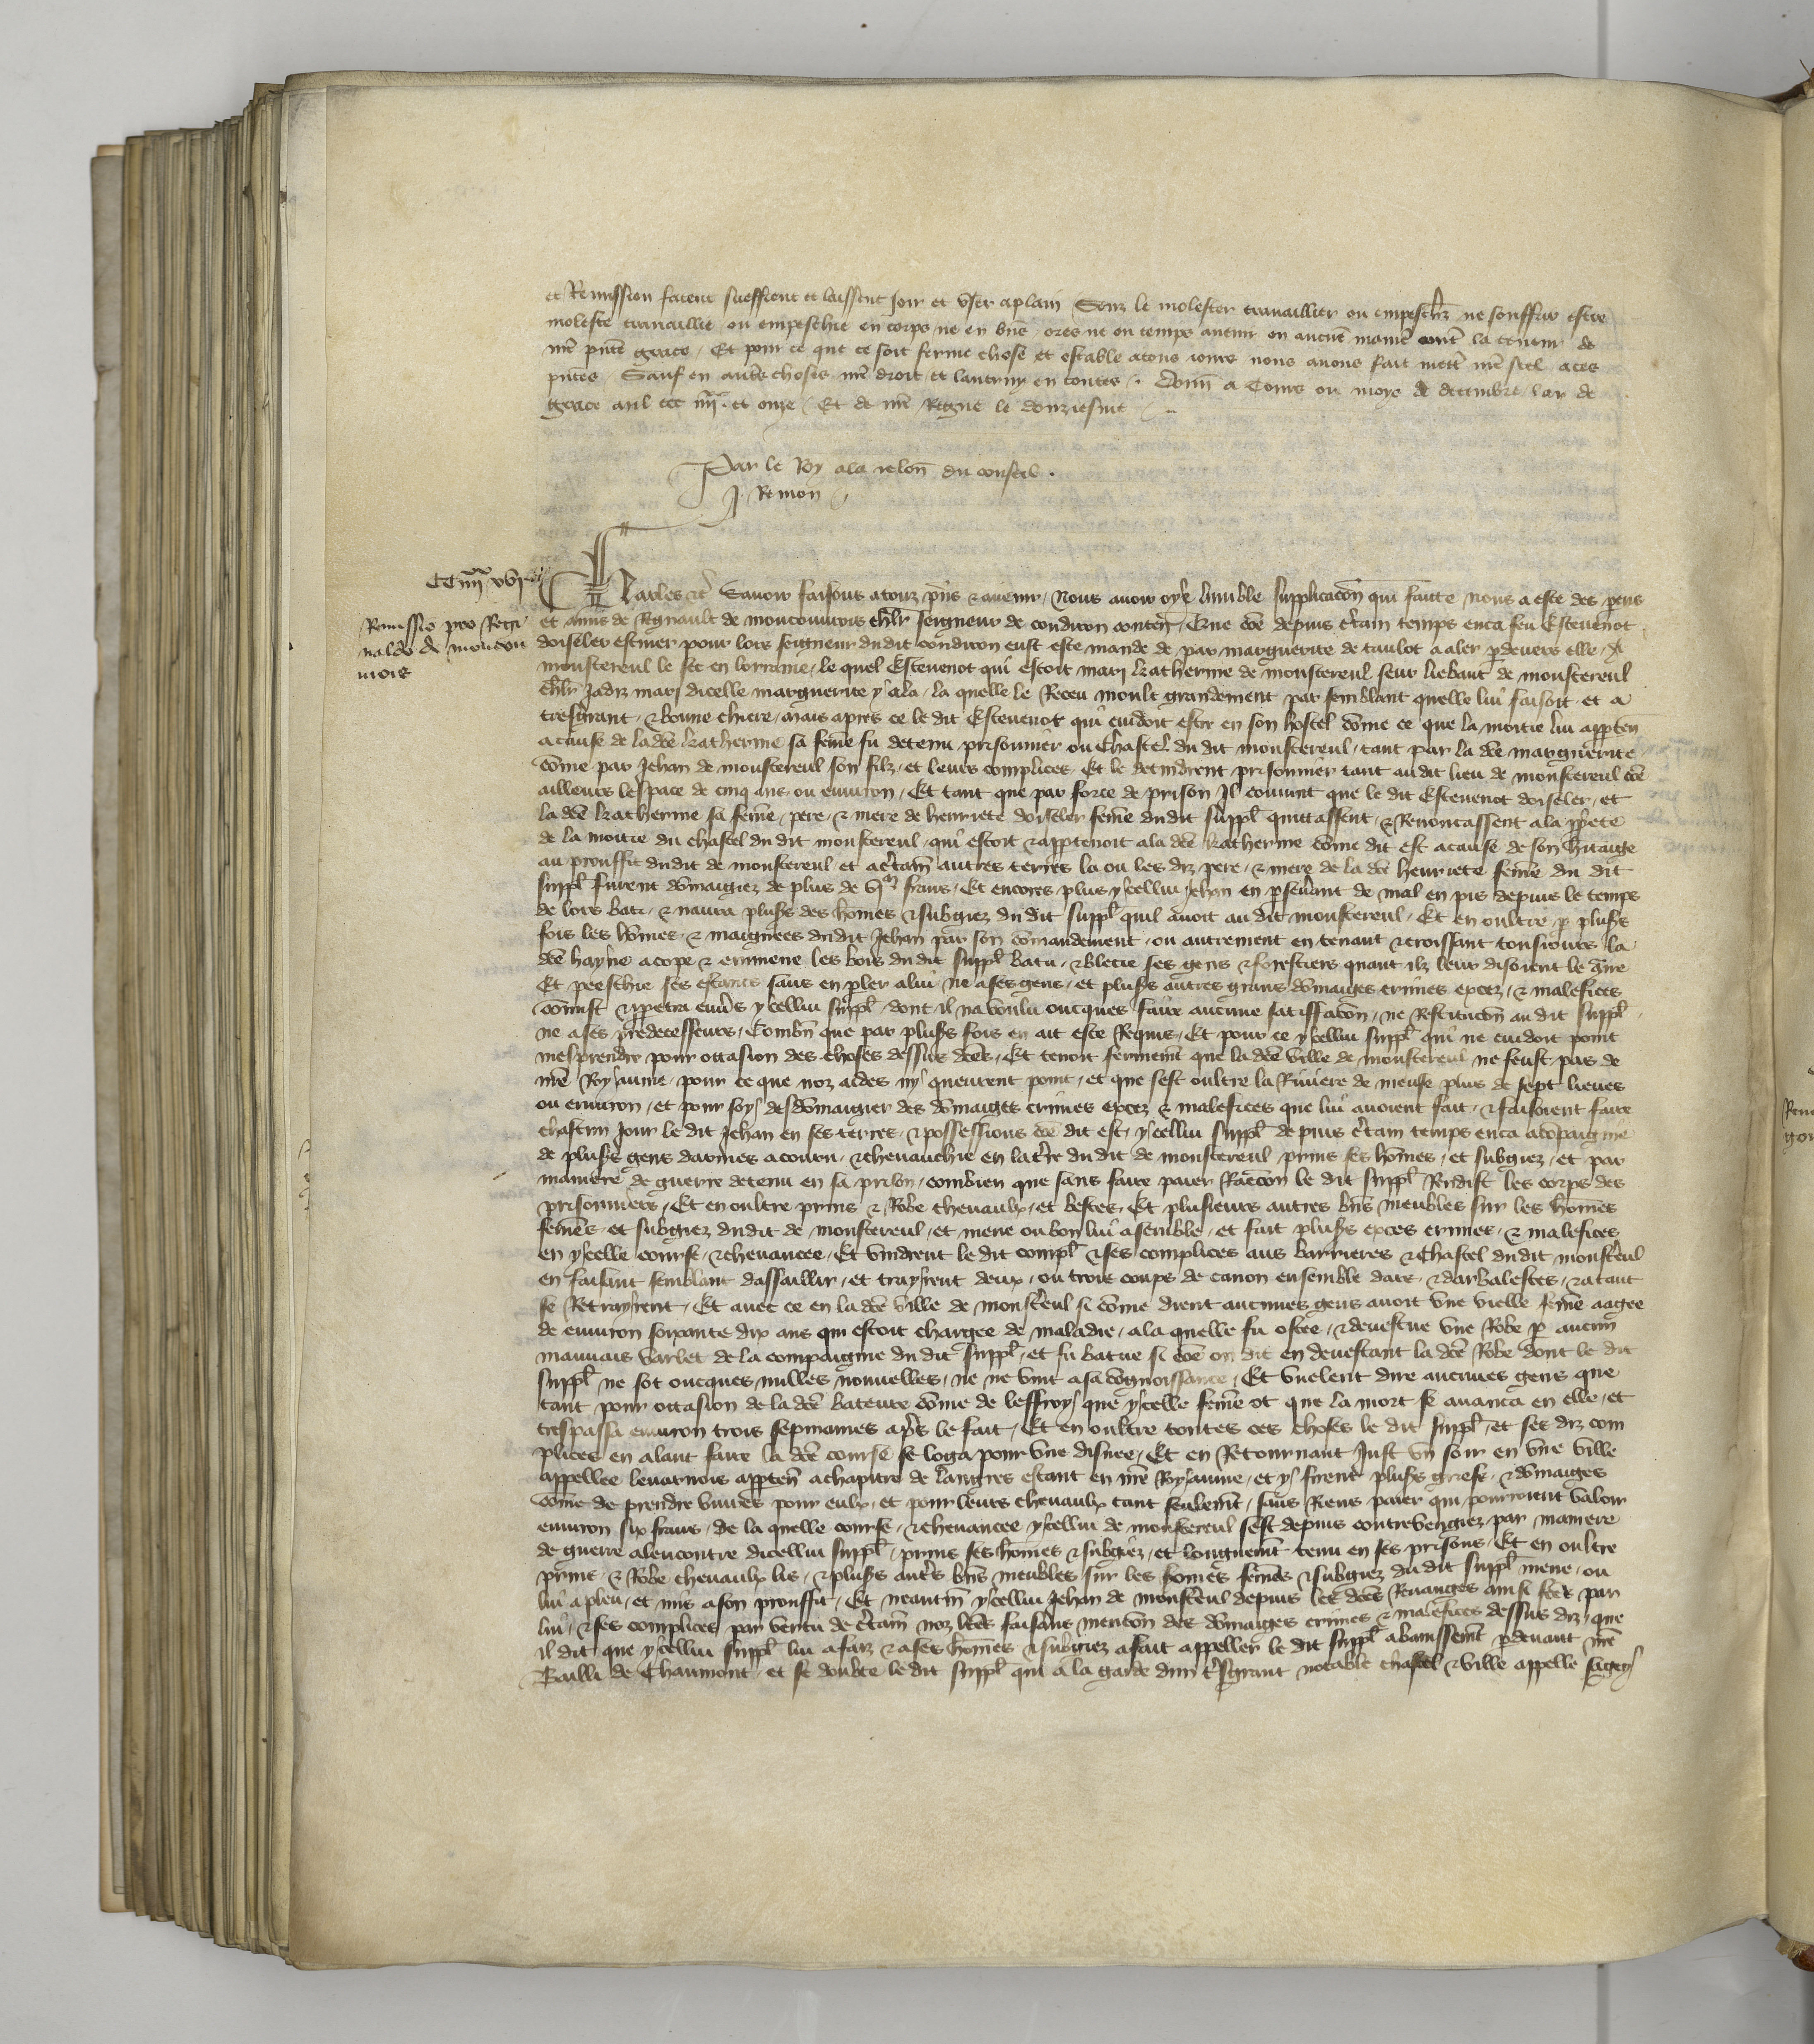 et Remission facent sueffrent et laissent joir et user aplain Senz le molester travaillier ou empeschr ne souffrir estre
moleste travaillie ou empeschie en corps ne en biens ores ne ou temps avenir en aucune maniere contre la teneur de
nre pnte grace, Et pour ce que ce soit ferme chose et estable atous jours nous avons fait mettre nre seel aces
pntes, Sauf en autres choses nre droit et lautruy en toutes. Donn a Tours ou moys de decembre lan de
grace mil ccc iiiixx et onze, Et de nre Regne le douziesme
Par le Roy ala relon du conseil.
J. Remon
CC iiiixx xvi
Remissio pro Regi
naldo de moncou
uois
Charles etc Savoir faisons atouz pns et avenir, Nous avoir oye lumble supplicacon qui faicte nous a este des parens
et amis de Regnault de moncouvrois chlr seigneur de condicon conten, Que come depuis certain temps enca feu Estevenot
doiseler escuier pour lors seigneur dudit condicon eust este mande de par marguerite de taulot a aler pdevers elle, A
monstereul le sec en lorraine, le quel Estevenot qui estoit mary katherine de monstereul seur liebaut de monstereul
chlr Jadiz mary dicelle marguerite y ala, la quelle le Receu moult grandement par semblant quelle lui faisoit et a
tresgrant et bonne chiere, mais apres ce le dit Estevenot qui cuidoit estre en son hostel come ce que la moitie lui apparten
acause de ladce katherine sa feme fu detenu prisonnier ou Chastel du dit monstereul, tant par la dce marguerite
come par Jehan de monstereul son filz, et leurs complices, Et le detindrent prisonnier tant audit lieu de monstereul coe
ailleurs lespace de cinq ans ou environ, Et tant que par force de prison Il convint que le dit Estevenot doiseler, et
la dce katherine sa feme, pere et mere de henriete doiseler feme du dit suppl quittassent et Renoncassent ala pprete
de la moitie du chastel du dit monstereul, qui estoit et appartenoit ala dce katherine come dit est acause de son heritaige
au prouffit dudit de monstereul et acertain autres terres la ou les diz pere et mere de la dce henriete feme du dit
suppl furent domaigiez de plus de vim frans, Et encores plus ycellui Jehan en pseverant de mal en pis depuis le temps
de lors bati et navra pluss des homes et subgiez du dit suppl quil avoit au dit monstereul, Et en oultre p pluss
fois les homes et maignees du dit Jehan par son comandement ou autrement en tenant et croissant tousjours la
dce hayne a cope et enmene les bois du dit suppl batu et blecie ses gens et forestiers quant ilz leur disoient le contraire
Et peeschie ses estancs sans en pler alui ne ases gens, et pluss autres grans domaiges crimes excez et malefices
comist et ppetra envers ycellui suppl dont il na voulu oncques faire aucune satisfacon, ne Restitucon au dit suppl
ne ases predecesseurs, Combn que par pluss fois en ait este Requis, Et pour ce ycellui suppl qui ne cuidoit point
mesprendre pour occasion des choses dessus dces, Et tenoit fermemt que la dce ville de monstereul ne feust pas de
nre Royaume pour ce que noz aides ny queurent point, et que sest oultre la Riviere de meuse plus de sept lieues
ou environ, et pour soy desdomaigier des domaiges crimes excez et malefices que lui avoient fait et faisoient faire
chascun jour le dit Jehan en ses terres et possessions coe dit est, ycellui suppl depuis certain temps enca acopaigne
de pluss gens darmes a couru et chevauchie en la terre du dit de monstereul prins ses homes et subgiez, et par
maniere de guerre detenu en sa prison, combien que sans faire paier Raencon le dit suppl Rendist les corps des
prisonniers, Et en oultre prins et Robe chevaulx, et bestes, Et plusieurs autres bns meubles sur les homes
femes et subgiez dudit de monstereul, et mene ou bon lui a semble, et fait pluss exces crimes et malefices
en ycelle course et chevauchee, Et vindrent le dit compl et ses complices aus barrieres et Chastel du dit monstereul
en faisant semblant dassaillir, et trayrent deux ou trois coups de canon ensemble darc et darbalestes, et atant
se Retrayrent, Et avec ce en la dce ville de monstereul si come dient aucunes gens avoit une vielle feme aagee
de environ soixante dix ans qui estoit chargee de maladie, ala quelle fu ostee et devestue une Robe p aucun
mauvais varlet de la compaignie du dit suppl, et fu batue si coe on dit en devestant la dce Robe dont le dit
suppl ne sot oncques nulles nouvelles, ne ne vint a sa cognoissance, Et veulent dire aucunes gens que
tant pour occasion de la dce bateure come de leffroy que ycelle feme ot que la mort se avanca en elle, et
trespassa environ trois sepmaines aprs le fait, Et en oultre toutes ces choses le dit suppl et ses diz com
plices en alant faire la dce course se loga pour une disnee, Et en Retournant Just un soir en une ville
appellee levarnois apparten a chapitre de langres estant en nre Royaume, et y firent pluss griefs et domaiges
come de prendre vivres pour eulx, et pour leurs chevaulx tant seulemt, sans Riens paier qui pourroient valoir
environ six frans, de la quelle course et chevauchee ycellui de monstereul sest depuis contrevengiez par maniere
de guerre alencontre dicellui suppl, prins ses homes et subgiez, et longuemt tenu en ses prisons, Et en oultre
prins et Robe chevaulx lis, et pluss autrs bns meubles sur les homes femes et subgiez du dit suppl mene ou
lui a pleu, et mis a son prouffit, Et neantm ycellui Jehan de monstereul depuis les dces Revanges ainsi fcez par
lui et ses complices par vertu de certain noz lres faisans mencon des domaiges crimes et malefices dessus diz, que
il dit que ycellui suppl lui a faiz et a ses homes et subgiez a fait appeller le dit suppl a banissemt pdevant nre
Bailli de Chaumont, et se doubte le dit suppl qui a la garde dun trsgrant notable chastel et ville appelle sagey